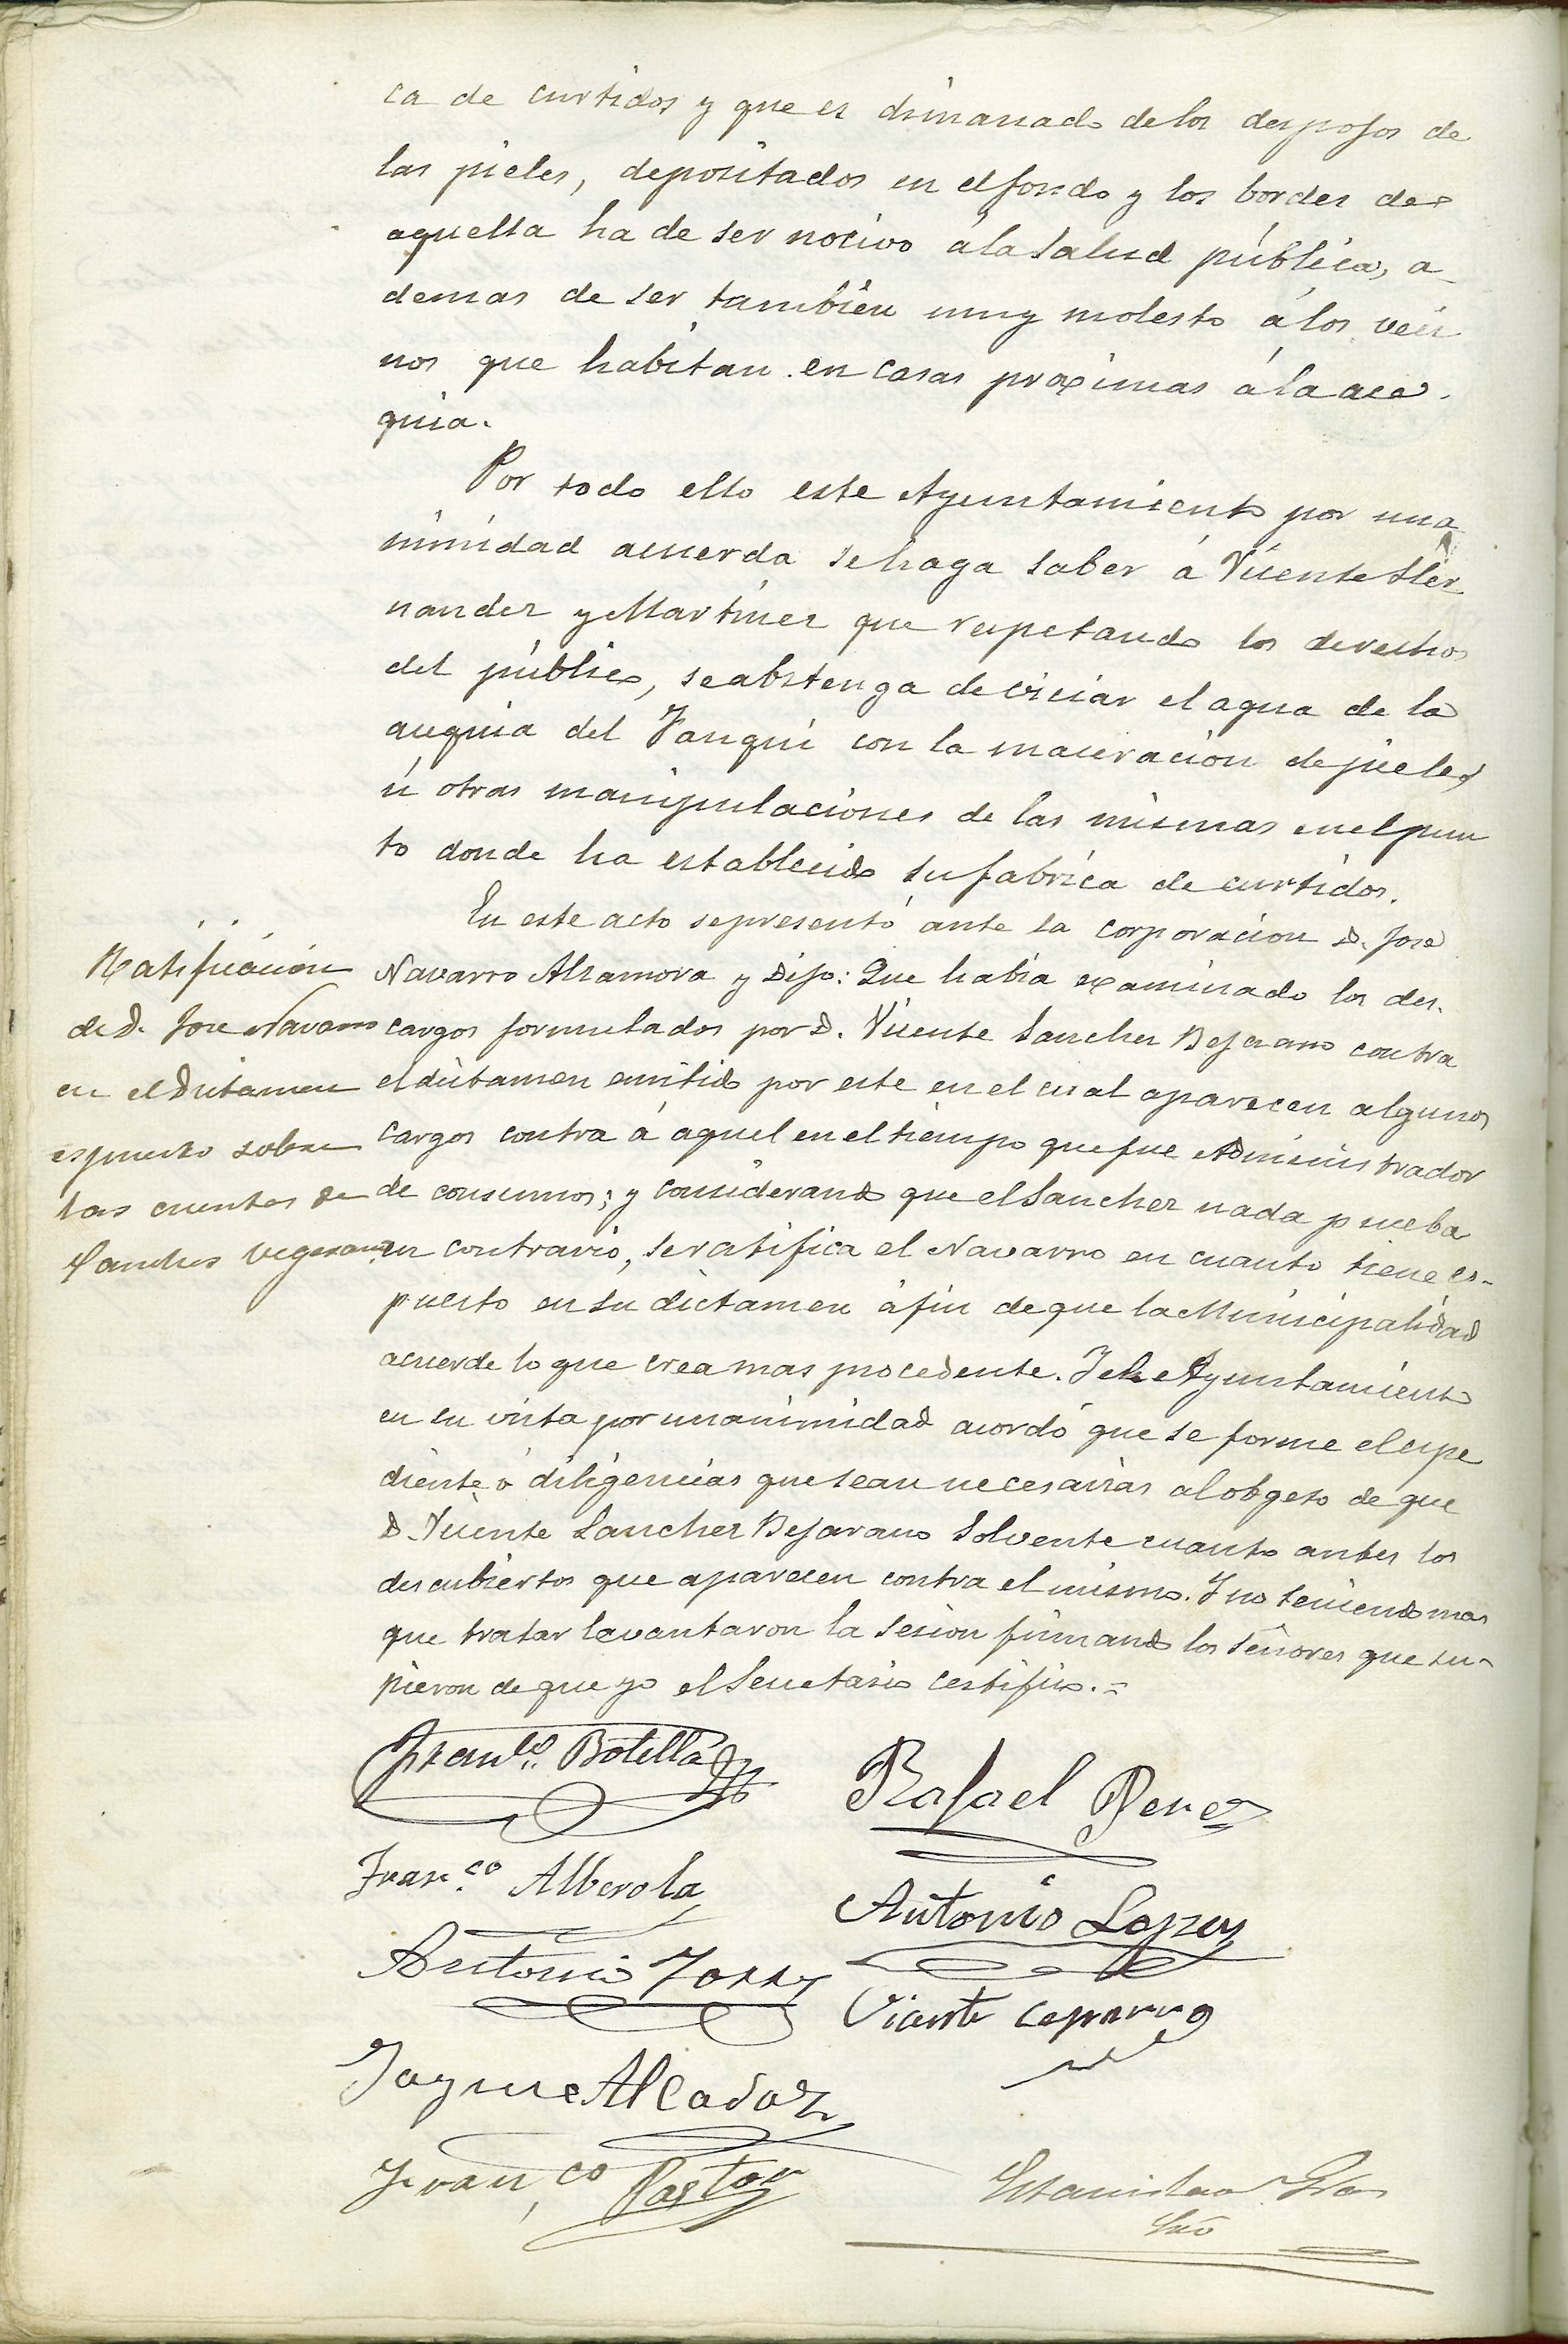 ca de curtidos y que es dimanado delos despojos de
las pieles, depositados en elfondo y los bordes de
aquella ha de ser nocivo álasalud pública, a
demas de ser tambien muy molesto álos veci
nos que habitan en casas proximas ála ace-
quia.
Por todo ello este Ayuntamiento por una
nimidad acuerda sehaga saber á Vicente Her
nandez y Martinez que respetando los derechos
del público, seabstenga deviciar elagua de la
acequia del Fanqui con la maceracion depieles,
ú otras manipulaciones de las mismas enelpun
to donde ha establecido sufabrica de curtidos.
En este acto sepresentó ante la corporacion D. José
Navarro Alzamora y Dijo: Que habia examinado los des-
cargos formulados por D. Vicente Sanchez Bejerano contra
eldictamen emitido por este en el cual aparecen algunos
cargos contra á aquel en el tiempo quefue Administrador
de consumos; y considerando que elSanchez nada prueba
en contrario, seratifica el Navarro en cuanto tiene es-
puesto en su dictamen áfin deque laMunicipalidad
acuerde lo que crea mas procedente. Y el Ayuntamiento
en su vista por unanimidad acordó que se forme elespe
diente ó diligencias quesean necesarias alobgeto de que
D. Vicente Sanchez Bejarano Solvente cuanto antes los
descubiertos que aparecen contra el mismo. Y no teniendo mas
que tratar levantaron la sesion firmando los Señores que su-
pieron de que yo el Secretario certifico.=
Ratificacion
de D. Jose Navarro
en el Dictamen
espuesto sobre
las cuentas de
Sanches Vegerano
Franco. Botella
Rafael Perez
Franco. Alberola
Antonio Lopez
Antonio Torres
Vicente Caparro
Jayme Alcadaz
Franco Pastor
Estanislao Gras
Srio